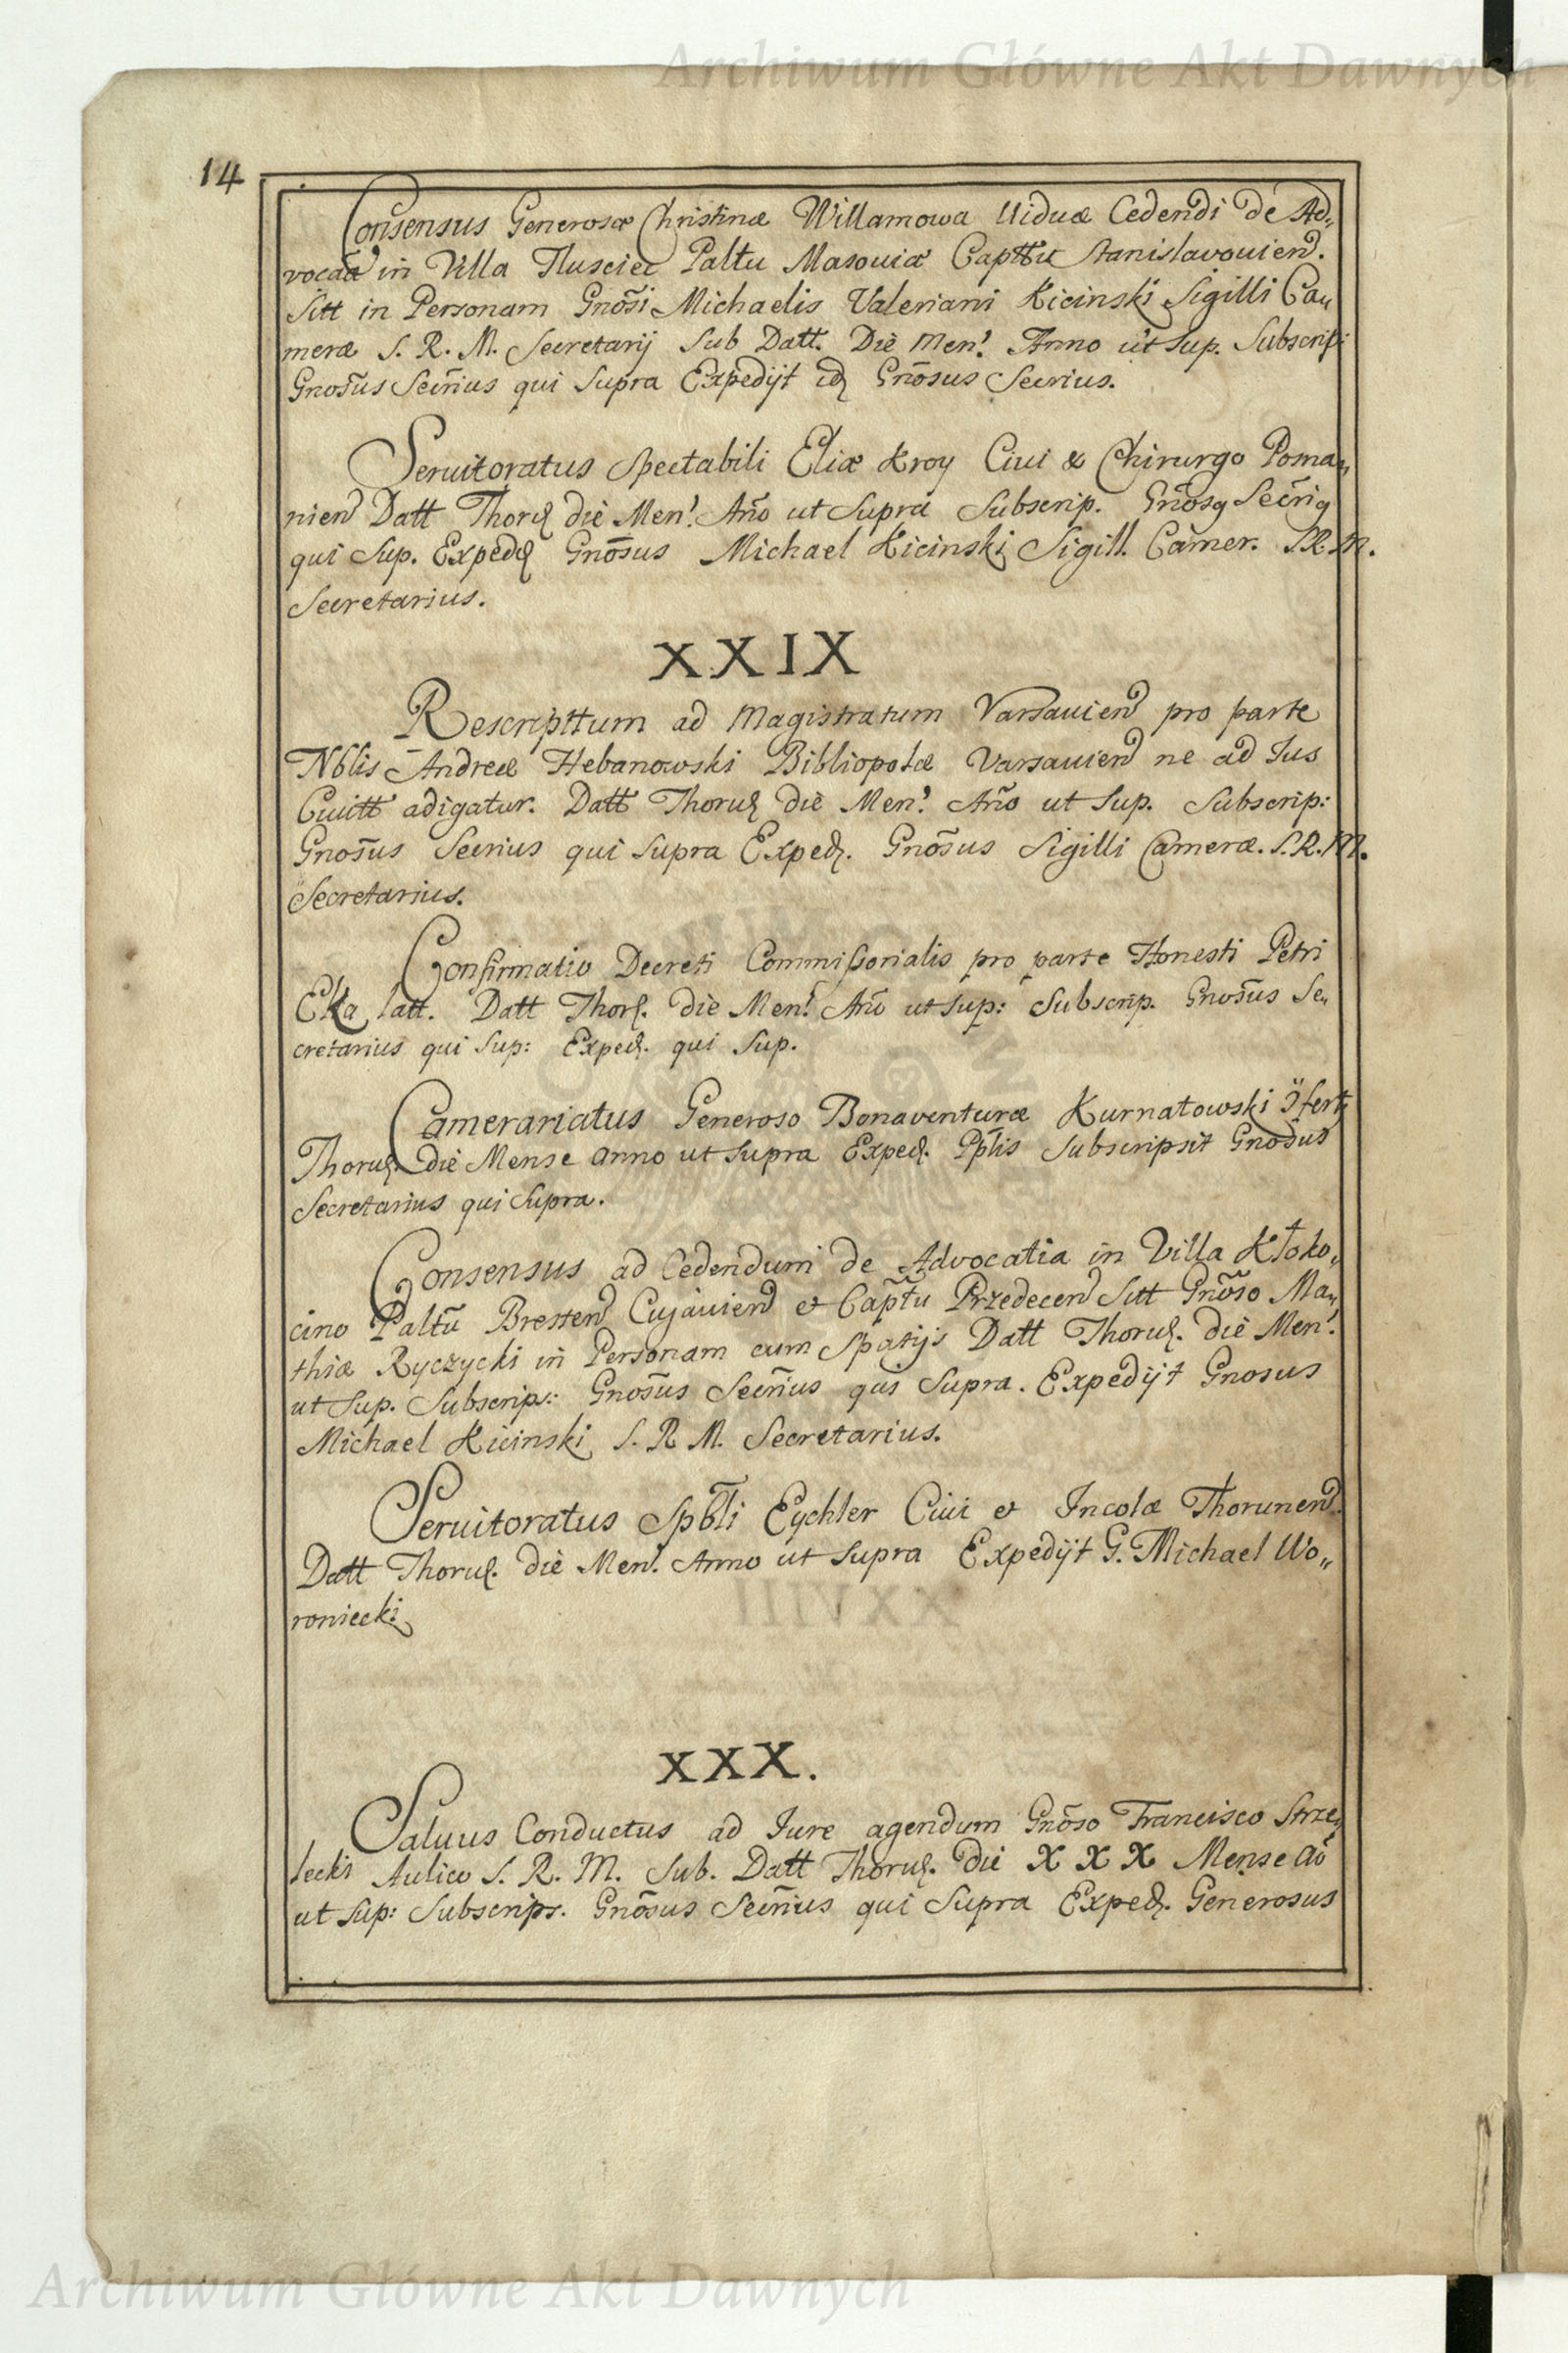 Archiwum Główne Akt Dawnych
14
Consensus Generosæ Christinæ Willamowa Uiduæ Cedendi de Ad„
vocaã in Villa Tlusciec Paltu Masouiæ Capttu Stanislavouien̄.
Sitt in Personam Gnõsi Michaelis Valeriani Kicinski Sigilli Ca„
meræ S. R. M. Secretarij Sub Datt. Die Men! Anno ut Sup. Subscrip:
Gnõsus Secr̃ius qui Supra Expedijt idȝ Gnõsus Secrius.
Seruitoratus Spectabili Eliæ Kroy Ciui & Chirurgo Posna„
nien̄ Datt Thorȝ die Men! Año ut Supra Subscrip. Gñosq Secr̃iq
qui Sup. Expedȝ Gnõsus Michael Kicinski Sigill. Camer. S.R.M.
Secretarius.
XXIX
Rescripttum ad Magistratum Varsauien̄ pro parte
Nblis Andreæ Hebanowski Bibliopolæ Varsauien̄ ne ad Ius
Cuiitt adigatur. Datt Thoruȝ die Men! Año ut Sup. Subscrip:
Gnõsus Secrius qui Supra Expedȝ. Gnõsus Sigilli Cameræ. S.R.M.
Secretarius.
Confirmatio Decreti Commissorialis pro parte Honesti Petri
Eka latt. Datt Thorȝ. die Men! Año ut Sup: Subscrip. Gnõsus Se„
cretarius qui Sup: Expedȝ. qui Sup.
Camerariatus Generoso Bonaventuræ Kurnatowski
Thoruȝ. die Mense anno ut Supra Expedȝ. Pp̃lis Subscripsit Gnõsus
Secretarius qui Supra.
Consensus ad Cedendum de Advocatia in Villa Kłoko„
cino Paltũ Bresten̄ Cujavien̄ et Cap̃tu Przedecen̄ Sitt Gnõso Ma„
thiæ Ryczycki in Personam cum Spatijs Datt Thoruȝ. die Men!
ut Sup. Subscrip: Gnõsus Secr̃ius qui Supra. Expedijt Gnosus
Michael Kicinski S. R M. Secretarius.
Seruitoratus Spb̃li Eychler Ciui et Incolæ Thorunen̄.
Datt Thoruȝ. die Men! Anno ut Supra Expedijt G. Michael Wo„
roniecki
XXX.
Saluus Conductus ad Iure agendum Gnõso Francisco Strze„
lecki Aulico S. R. M. Sub. Datt Thoruȝ. die X X X Mense aõ
ut Sup: Subscrips. Gnõsus Secr̃ius qui Supra Expedȝ. Generosus
Archiwum Główne Akt Dawnych